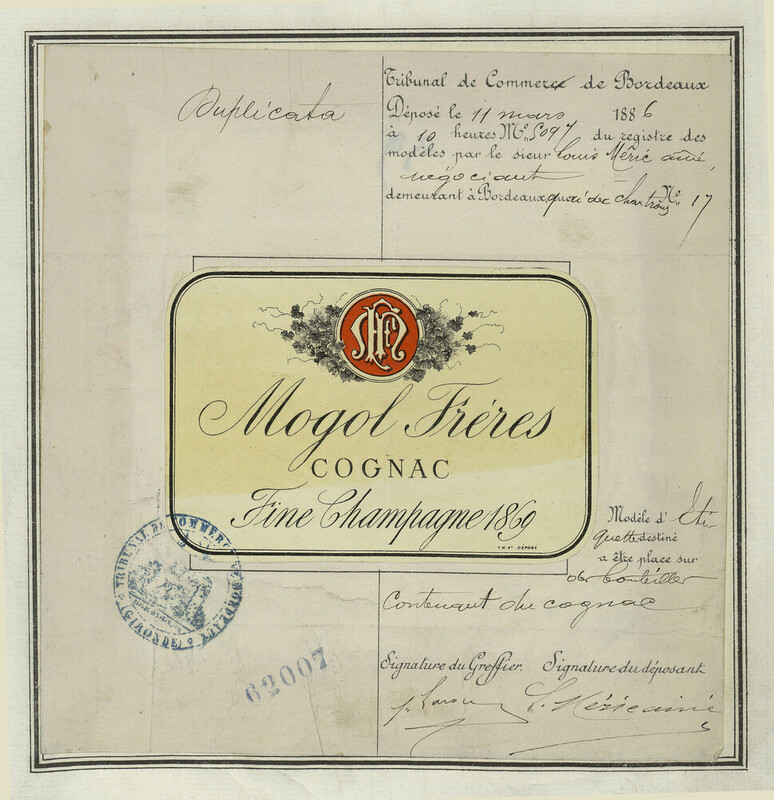 Duplicata
Tribunal de Commerce de Bordeaux
Déposé le 11 mars 1886
à 10 heures No. 5097 du registre des
modèles par le sieur Louis Méric aîné,
négociant
demeurant à Bordeaux, quai des Chartrons No. 17
Mogol Fréres
COGNAC
Fine Champagne 1869
DÉPOSÉ
Modèle d'Éti-
quette destiné
a être place sur
des bouteilles
Contenant du cognac
TRIBUNAL DE COMMERCE
BORDEAUX
(GIRONDE)
62007
Signature du Greffier. Signature du déposant
L. Méric aîné